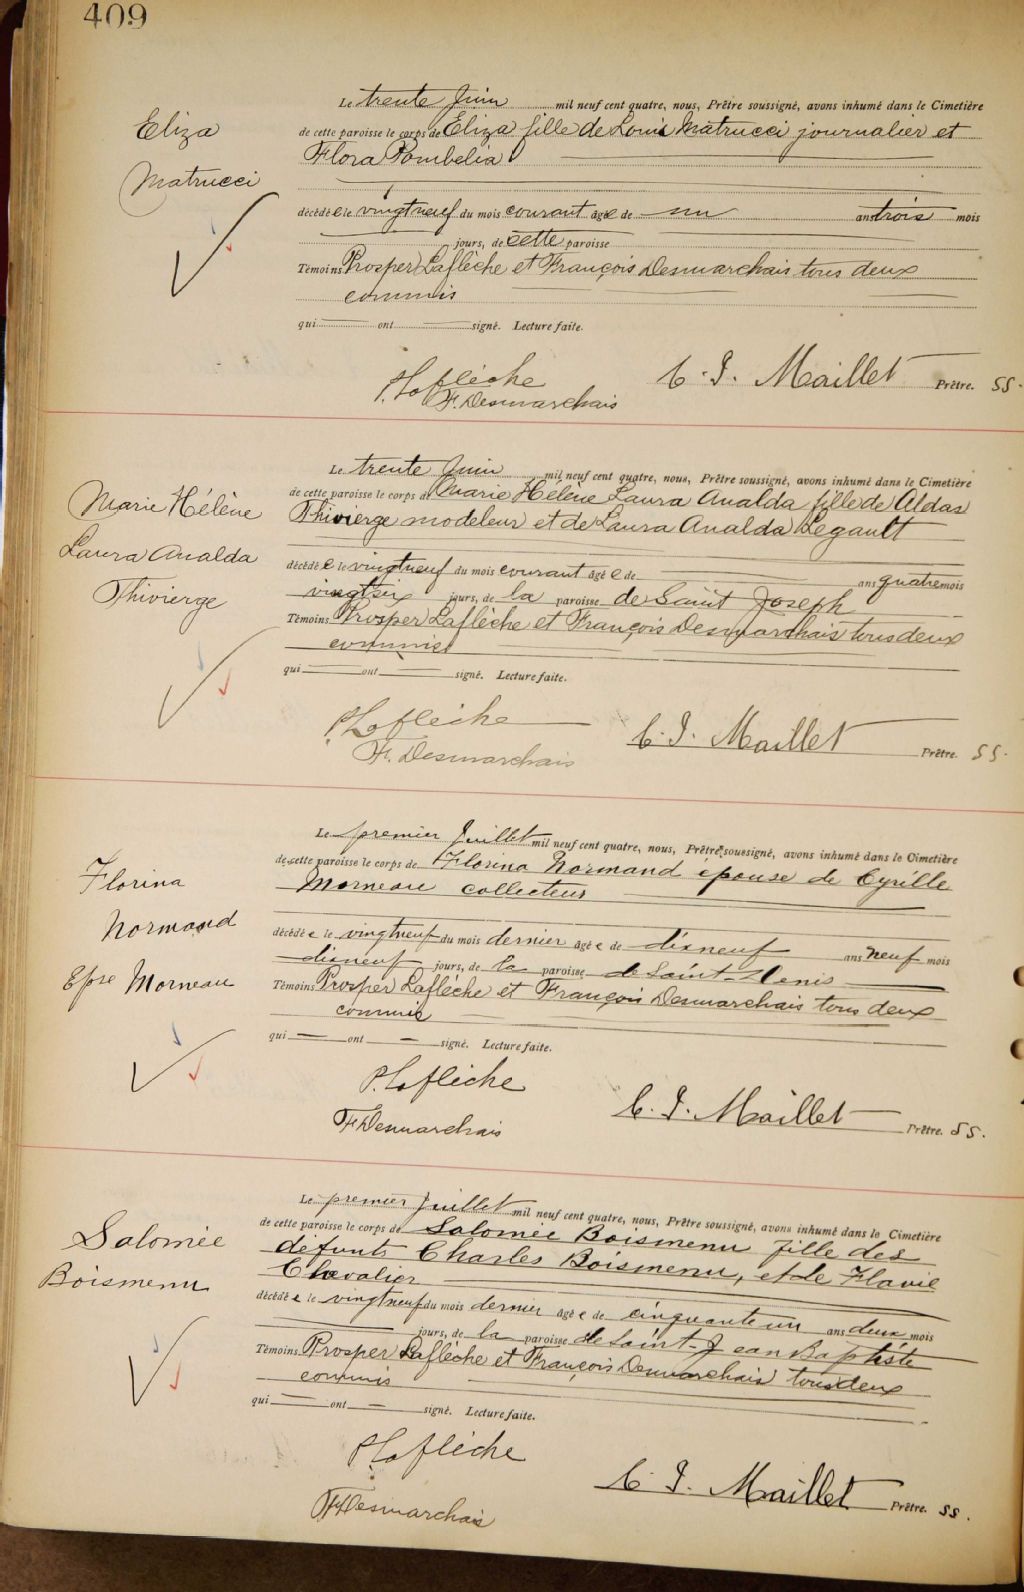 409
Eliza
Matrucci
Le trente Juin mil neuf cent quatre, nous, Prêtre soussigné, avons inhumé dans le Cimetière
de cette paroisse le corps de Eliza fille de Louis Matrucci journalier et
Flora Pombelia
décédé e le vingtneuf du mois courant âgé e de un ans trois mois
jours, de cette paroisse
Témoins Prosper Laflèche et François Desmarchais tous deux
commis
qui ont signé. Lecture faite.
P. Laflèche
F. Desmarchais
C. J. Maillet Prêtre. SS.
Marie Hélène
Laura Analda
Thivierge
Le trente Juin mil neuf cent quatre, nous, Prêtre soussigné, avons inhumé dans le Cimetière
de cette paroisse le corps de Marie Hélène Laura Analda fille de Aldas
Thivierge modeleur et de Laura Analda Legault
décédé e le vingtneuf du mois courant âgé e de ans quatre mois
vingtsix jours, de la paroisse de Saint Joseph
Témoins Prosper Laflèche et François Desmarchais tous deux
commis
qui ont signé. Lecture faite.
P. Laflèche
F. Desmarchais
C. J. Maillet Prêtre. SS.
Florina
Normand
Epse Morneau
Le premier Juillet mil neuf cent quatre, nous, Prêtre soussigné, avons inhumé dans le Cimetière
de cette paroisse le corps de Florina Normand épouse de Cyrille
Morneau collecteur
décédé e le vingtneuf du mois dernier âgé e de dixneuf ans neuf mois
dixneuf jours, de la paroisse de Saint-Denis
Témoins Prosper Laflèche et François Desmarchais tous deux
commis
qui ont signé. Lecture faite.
P. Laflèche
F. Desmarchais
C. J. Maillet Prêtre. SS.
Salomée
Boismenu
Le premier Juillet mil neuf cent quatre, nous, Prêtre soussigné, avons inhumé dans le Cimetière
de cette paroisse le corps de Salomée Boismenu fille des
défunts Charles Boismenu, et de Flavie
Chevalier
décédé e le vingtneuf du mois dernier âgé e de cinquante un ans deux mois
jours, de la paroisse de Saint-Jean Baptiste
Témoins Prosper Laflèche et François Desmarchais tous deux
commis
qui ont signé. Lecture faite.
P. Laflèche
F. Desmarchais
C. J. Maillet Prêtre. SS.